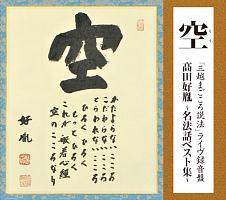 空
くう
「三越まごころ説法」ライヴ録音盤
高田好胤
～名法話ベスト集～
空
かたよらないこころ
こだわらないこころ
とらわれないこころ
ひろく ひろく
もっとひろく
これが般若心経
空のこころなり
好胤